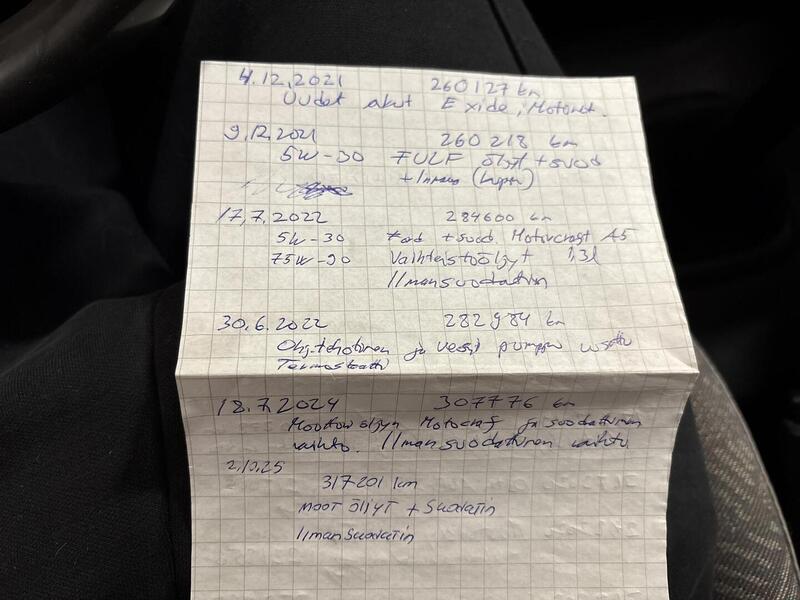 4.12.2021 260127 km
Uudet akut Exide, Motonet.
9.12.2021 260218 km
5W-30 FULF öljyt + suod
17.7.2022 284600 km
5W-30 Ford + suod. Motorcraft A5
75W-90 Vaihteistoöljyt 1,3l
Ilmansuodatin
30.6.2022 282984 km
ja vesi pumppu
Termostaatti
18.7.2024 307776 km
Moottoriöljyn Motocraf ja suodattimen
vaihto. Ilmansuodattimen vaihto
317201 km
MOOT ÖLJYT + Suodatin
Ilmansuodatin